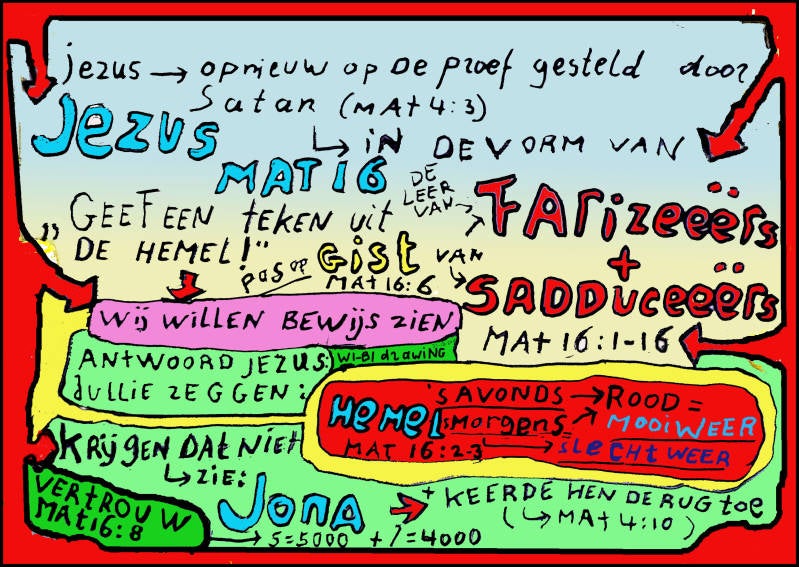 jezus → opnieuw op De proef gesteld door
Satan (MAt 4:3)
Jezus
↳ iN DE VORM VAN
MAt 16
DE
LEER
VAN
FARizeeërs
+
SADDUceeërs
MAt 16:1-16
„GEEF EEN teken uit
DE HEMEL!"
pas op Gist VAN
MAt 16:6
Wij WillEN BEWijS ZiEN
ANtWOORD JEZUS:
Wi-Bi dRAWiNG
JULLiE ZEGGEN:
HEMEL
'S AVONDS → ROOD =
'sMorgens = MOOiWEER
MAt 16:2-3 SlechtWEER
KRijGEN DAt NiEt
↳ ZiE:
VERtROUW
MAt 16:8
JONA
+ KEERDE HEN DE RUG toe
(↳ MAt 4:10)
→ 5=5000 + 7=4000